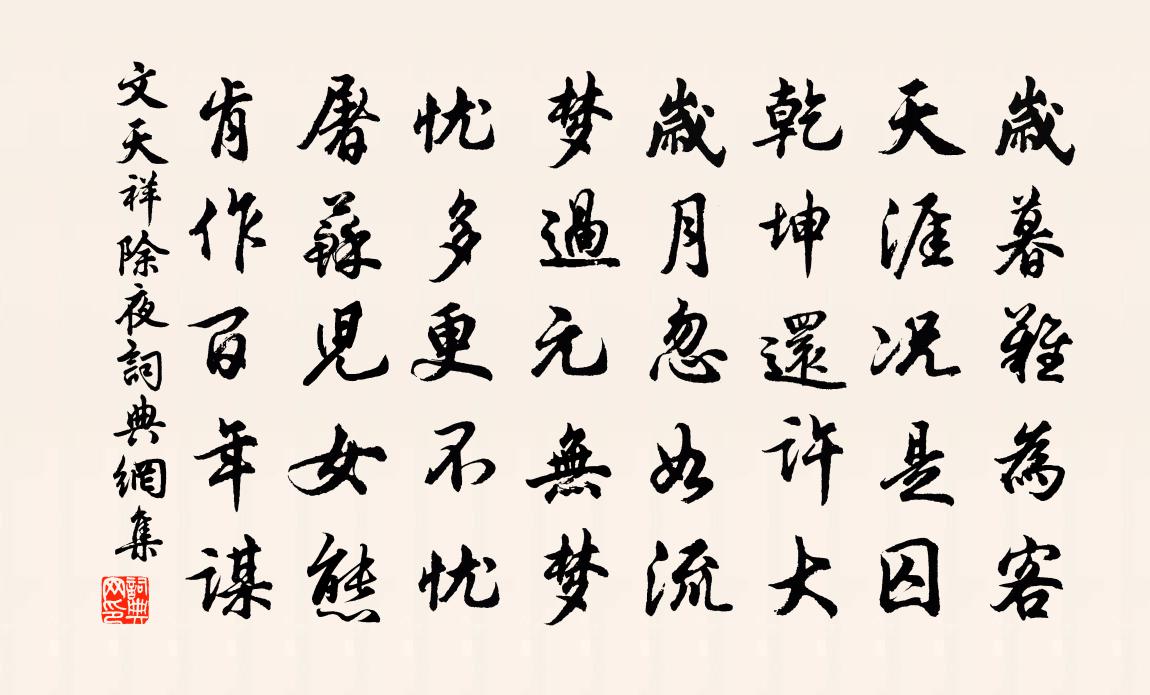 歲暮難為客
天涯况是囚
乾坤還許大
歲月忽如流
梦過元無梦
忧多更不忧
屠蘇児女態
肯作百年謀
文天祥除夜詞典網集
詞典网印